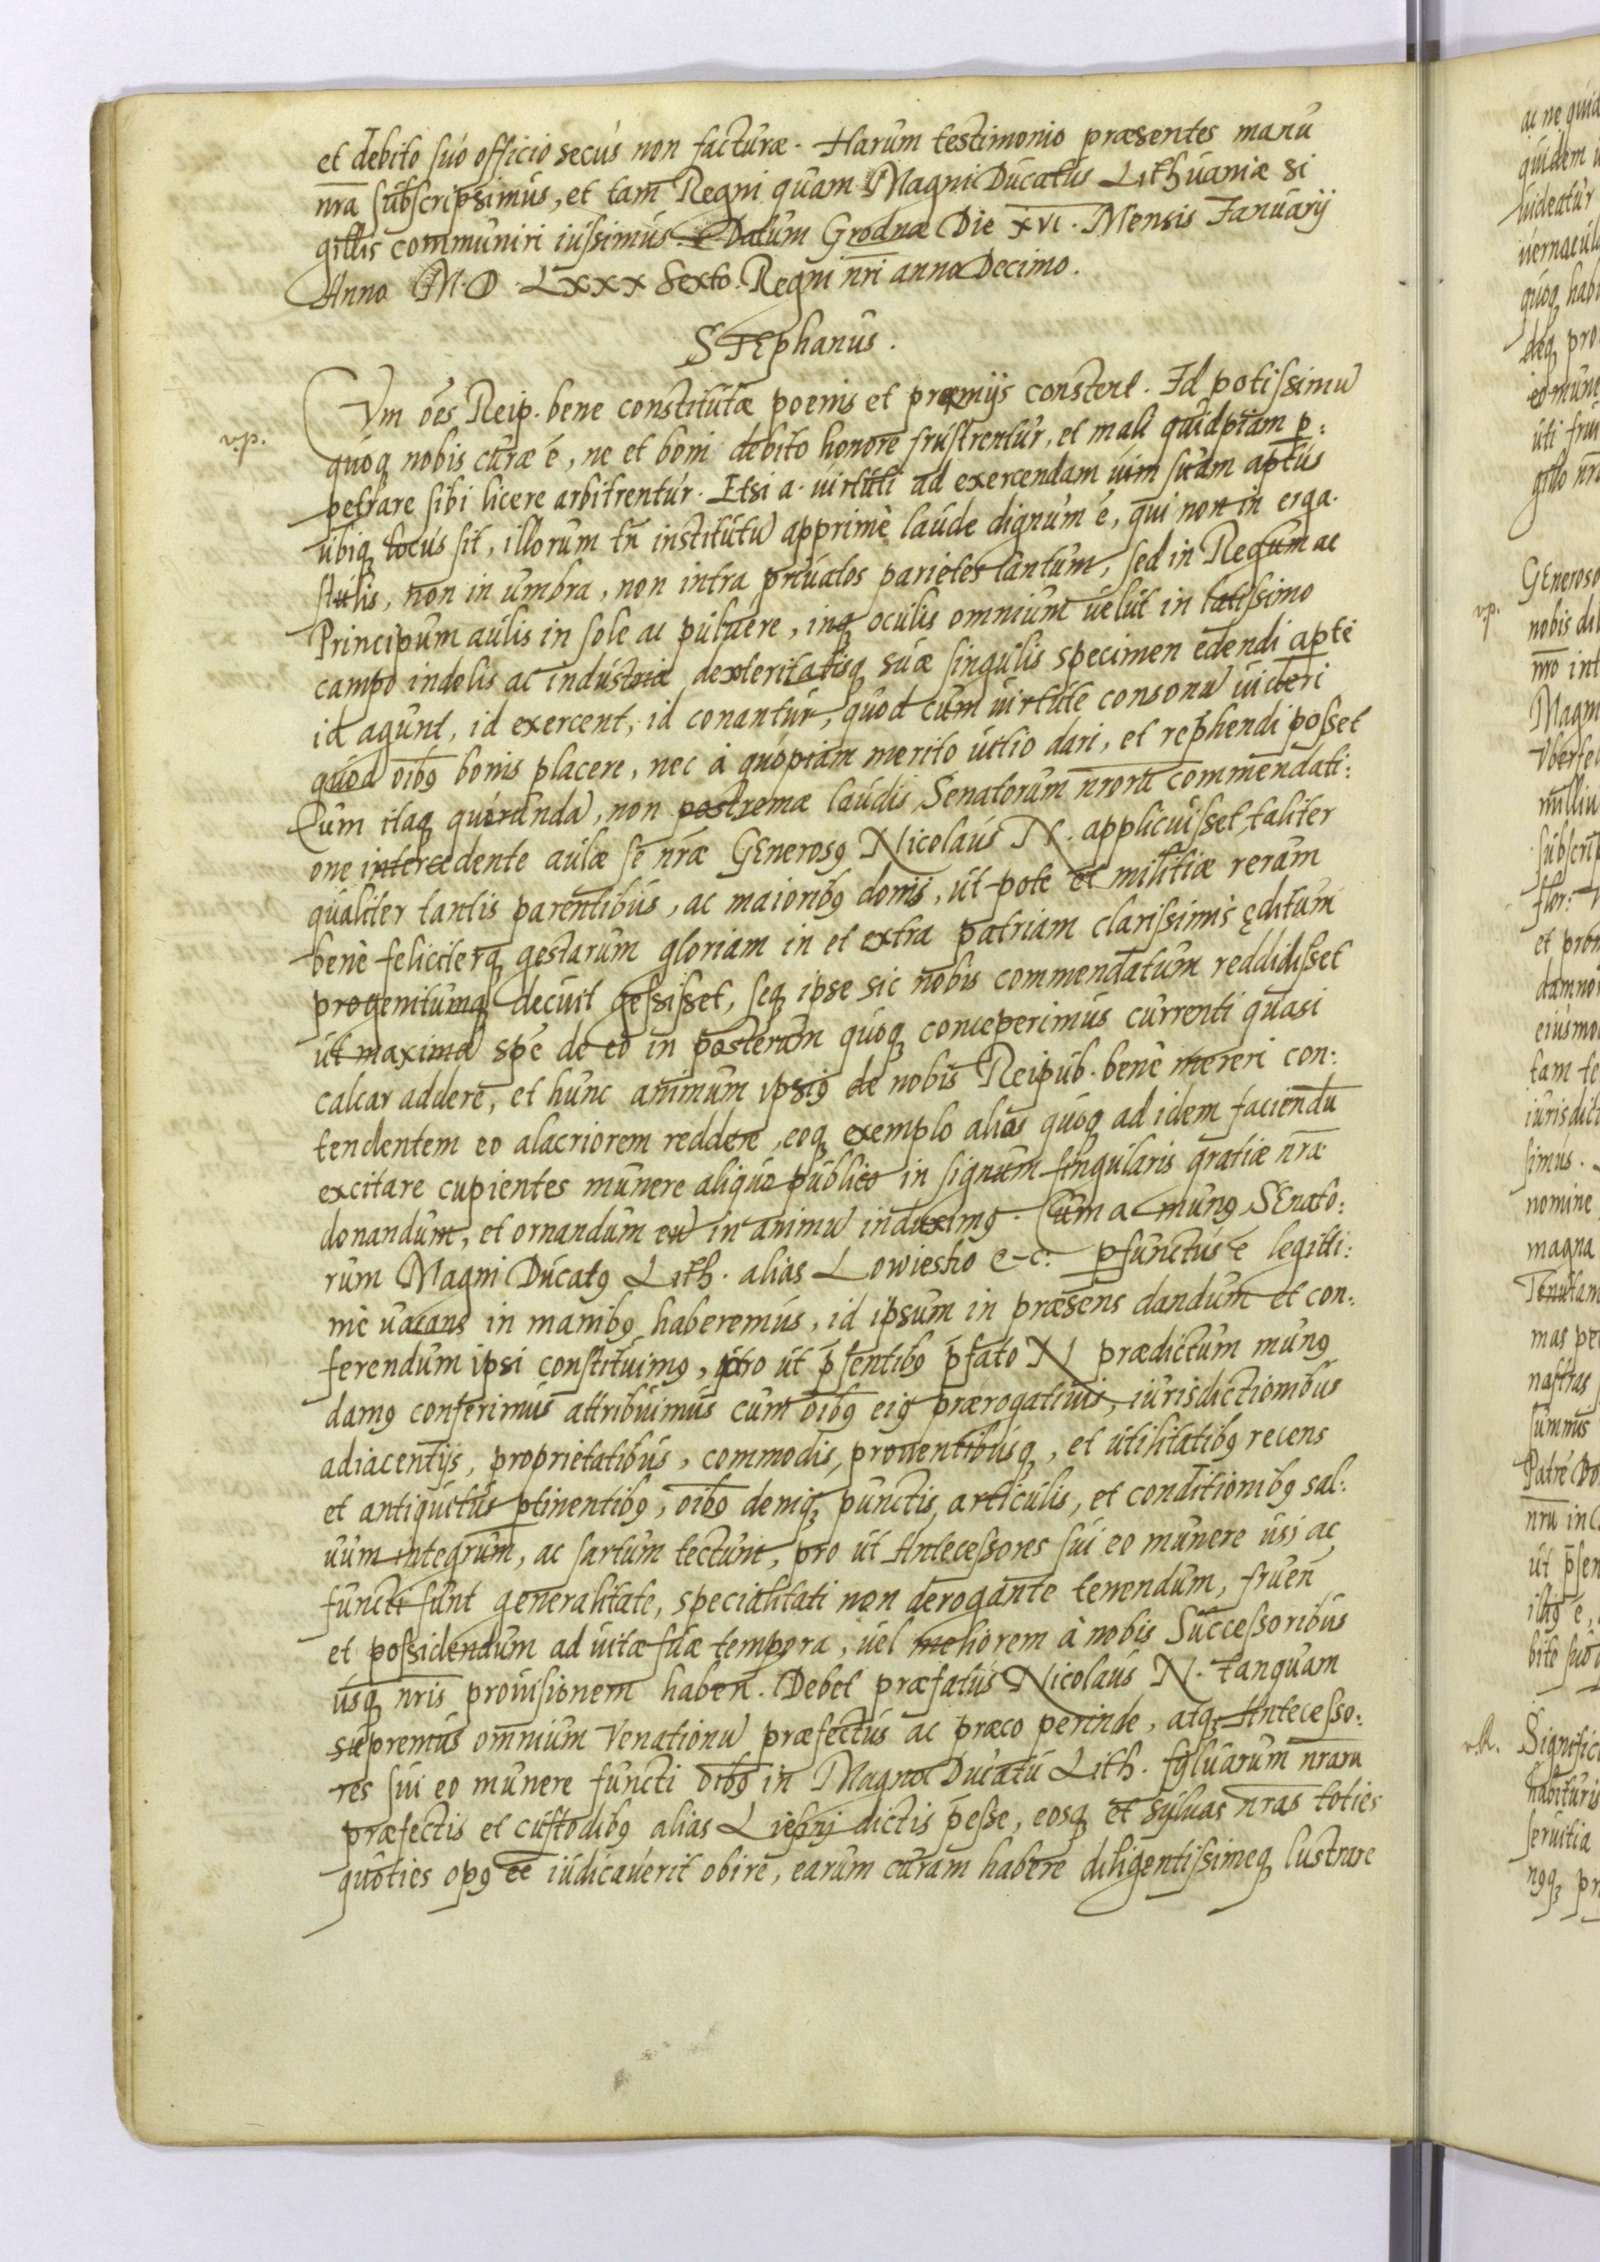 et debito suo officio secus non facturæ. Harum testimonio præsentes manu
nrā subscripsimus, et tam Regni quam Magni Ducatus Lithuaniæ si
gillis communiri iussimus. Datum Grodnæ Die XVI. Mensis Ianuarij
Anno M.D.LXXX Sexto. Regni nrī anno Decimo.
STEphanus.
Cum oēs Reip. bene constitutæ poenis et præmijs constent. Id potissimū
v.p.
quoq nobis curæ ē, ne et boni debito honore frustrentur, et mali quidpiam p:
petrare sibi licere arbitrentur. Etsi a. uirtuti ad exercendam uim suam aptus
ubiq locus sit, illorum tn̄ institutū apprimè laude dignum ē, qui non in erga
stulis, non in umbra, non intra priuatos parietes tantum, sed in Regum ac
Principum aulis in sole ac puluere, inq oculis omnium uelut in latissimo
campo indolis ac industriæ dexteritatisq suæ singulis specimen edendi apte
id agunt, id exercent, id conantur, quod cum uirtute consonū uideri
quod oībꝰ bonis placere, nec à quopiam merito uitio dari, et rephendi posset
Cum itaq quorundā, non postremæ laudis Senatorum nrorū commendati:
one intercedente aulæ se nræ GEnerosꝰ Nicolaus N. applicuisset, taliter
qualiter tantis parentibus, ac maioribꝰ domi, ut pote et militiæ rerum
benè feliciterq gestarum gloriam in et extra patriam clarissimis ęditum
progenitumq decuit gessisset, seq ipse sic nobis commendatum reddidisset
ut maximā spē de eo in posterum quoq conceperimus currenti quasi
calcar addere, et hunc animum ipsiꝰ de nobis Reipub. benè mereri con:
tendentem eo alacriorem reddere, eoq exemplo alios quoq ad idem faciendū
excitare cupientes munere aliquo publico in signum singularis gratiæ nræ
donandum, et ornandum eū in animū induximꝰ. Cum a. munꝰ SEnato:
rum Magni Ducatꝰ Lith. alias Lowiesho &c. pfunctus ē legitti:
mè uacans in manibꝰ haberemus, id ipsum in præsens dandum et con:
ferendum ipsi constituimꝰ, ut p̄sentibꝰ p̄fato N prædictum munꝰ
damꝰ conferimus attribuimus cum oībꝰ eiꝰ prærogatiuis, iurisdictionibus
adiacentijs, proprietatibus, commodis, prouentibusq, et utilitatibꝰ recens
et antiquitus ptinentibꝰ, oībꝰ deniq punctis, articulis, et conditionibꝰ sal:
uum integrum, ac sartum tectum, pro ut Antecessores sui eo munere usi ac
functi sunt generalitate, specialitati non derogante tenendum, fruen̄
et possidendum ad uitæ suæ tempora, uel meliorem à nobis Successoribus
usq nris prouisionem haben̄. Debet præfatus Nicolaus N. tanquam
supremus omnium Venationū præfectus ac præco perinde, atq Antecesso:
res sui eo munere functi oībꝰ in Magno Ducatu Lith. syluarum nrarū
præfectis et custodibꝰ alias dictis p̄esse, eosq et syluas nras toties
quoties opꝰ eē iudicauerit obire, earum curam habere diligentissimeq lustrare
ac ne quid
quidem
uideatur
quoq habi
pro
eo mune
uti frui
GEneroso
v.p.
nobis
Magni
subscrip
et
eiusmo
tam
simus.
nomine
magna
mas
summis
Patre
v.R.
habituris
seruitia